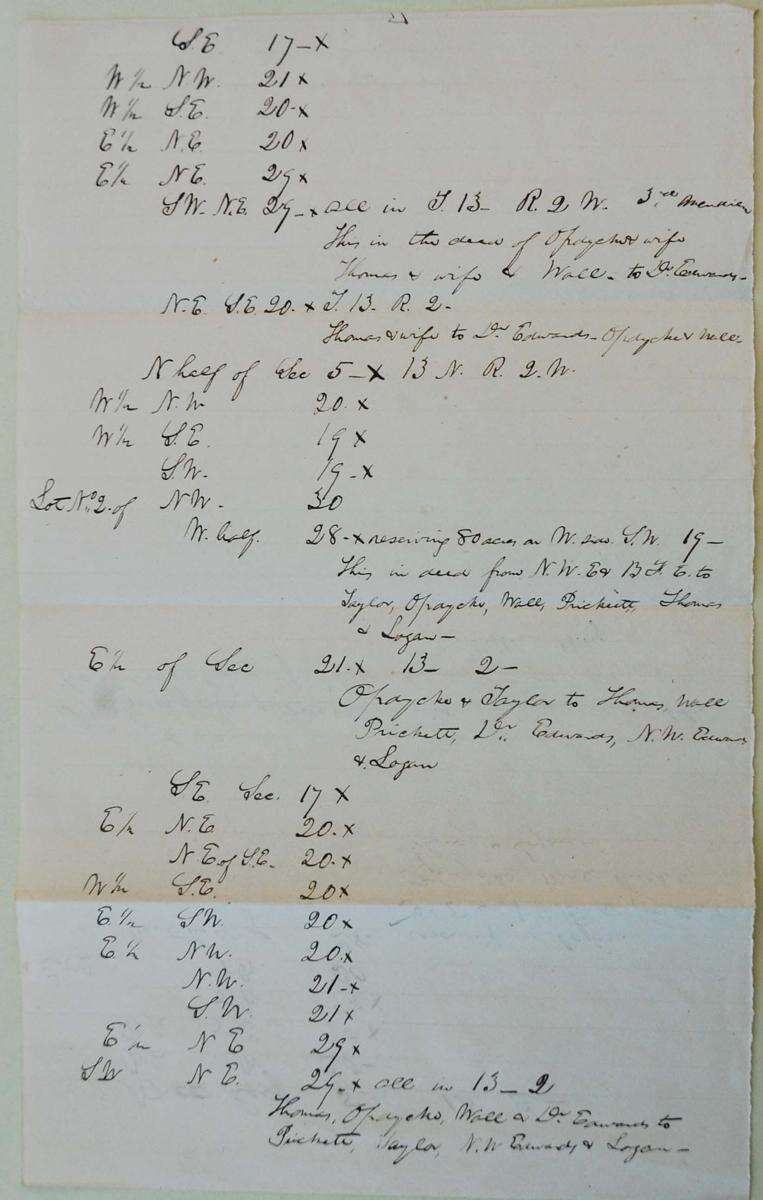 S.E. 17 - x
W 1/2 N.W. 21 x
W 1/2 S.E. 20 - x
E 1/2 N.E. 20 x
E 1/2 N.E. 29 x
S.W. N.E. 29 - x all in T. 13 - R. 2 W. 3rd
This in the deed of Opdycke & wife
Thomas & wife & Wall - to Dr. Edwards -
N.E. S.E. 20. x T. 13. R. 2 -
Thomas & wife to Dr. Edwards - Opdycke & Wall -
N half of Sec 5 - x 13 N. R. 2. W.
W 1/2 N.W 20. x
W 1/2 S.E. 19 x
S.W. 19 - x
Lot No. 2. of N.W. 30
W. half. 28 - x reserving 80 acres on W. side S.W. 19 -
This in deed from N.W. E & B.F. E. to
Taylor, Opdycke, Wall, Prickett, Thomas
& Logan -
E 1/2 of Sec 21. x 13 - 2 -
Opdycke & Taylor to Thomas, Wall
Prickett, Dr. Edwards, N.W. Edwards
& Logan
S.E Sec. 17 x
E 1/2 N.E 20. x
N E of S.E. 20. x
W 1/2 S.E. 20 x
E 1/2 S.W. 20 x
E 1/2 N.W. 20. x
N.W. 21 - x
S.W. 21 x
E 1/2 N E 29 x
S W N E. 29 - x all in 13 - 2
Thomas, Opdycke, Wall & Dr. Edwards to
Prickett, Taylor, N.W Edwards & Logan -